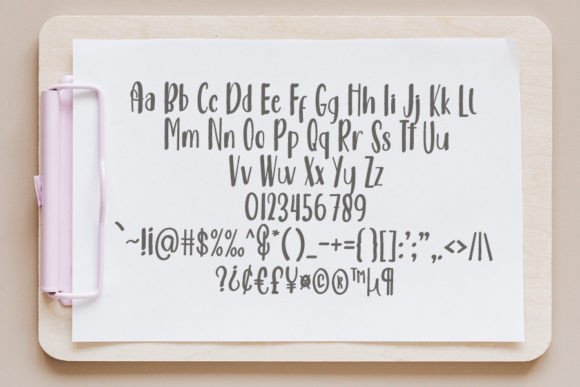 Aa Bb Cc Dd Ee Ff Gg Hh Ii Jj Kk Ll
Mm Nn Oo Pp Qq Rr Ss Tt Uu
Vv Ww Xx Yy Zz
0123456789
`~!¡@#$%‰^&*()_-+={}[]:';",.<>/|\
?¿¢€£¥¤©®™µ¶